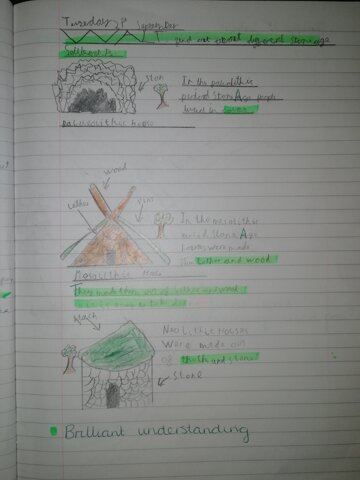 Tuesday 9 September
find out about different stone age
Settlements.
Ston
In the paleolithic
period Stone Age people
lived in caves.
palaeolithic house
wood
Lether
In the mesolithic
period Stone Age
houses were made
from Lether and wood
Mesolithic House
They made them out of lether and wood
thach
Neolithic Houses
were made out
of thach and stone
Stone
Brilliant understanding